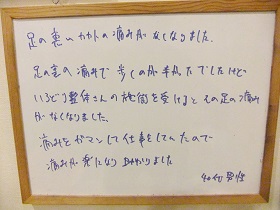 足の裏いカカトの痛みがなくなりました。
足の裏の痛みで歩くのが辛かたでしたけど
いろどり整体さんの施術を受けるとその足の痛み
がなくなりました。
痛みをガマンして仕事をしていたので
痛みが楽になり助かりました
40代 男性